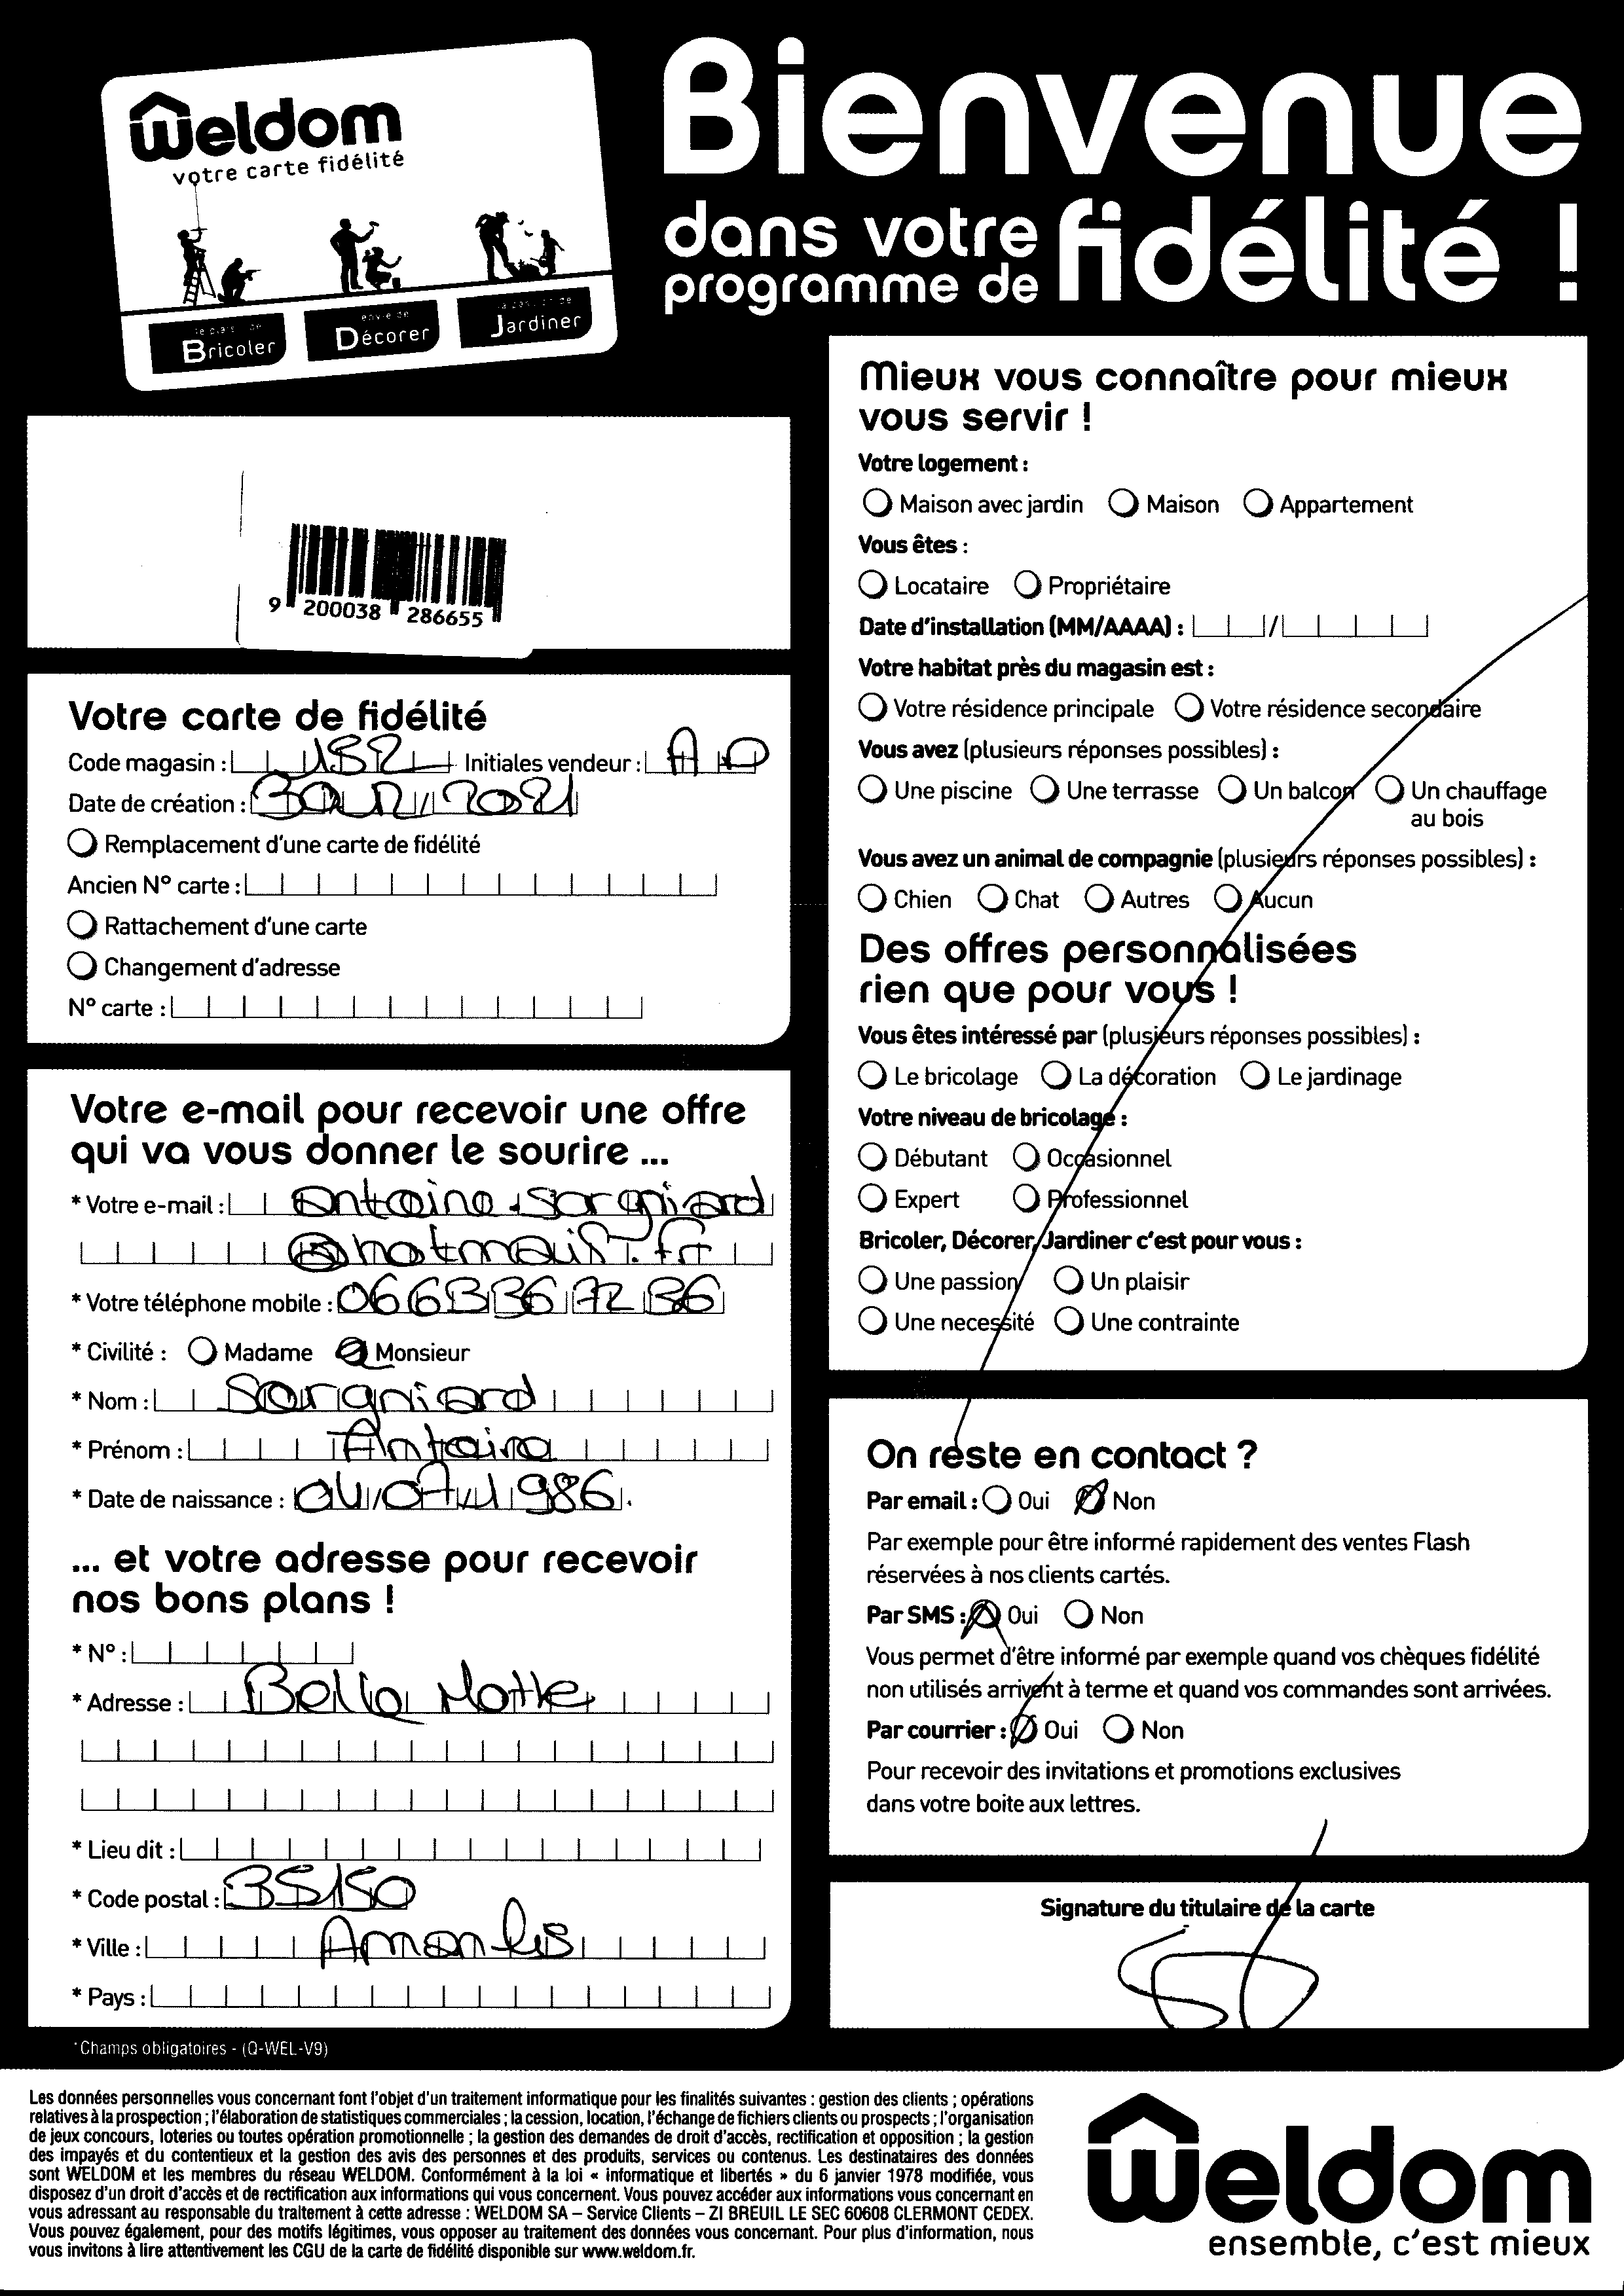 Weldom
votre carte fidélité
Bricoler
envie de
Décorer
Jardiner
Bienvenue
dans votre
programme de fidélité !
9 200038 286655
Votre carte de fidélité
Code magasin : 152 Initiales vendeur : A D
Date de création : 2021
Remplacement d'une carte de fidélité
Ancien N° carte :
Rattachement d'une carte
Changement d'adresse
N° carte :
Votre e-mail pour recevoir une offre
qui va vous donner le sourire ...
* Votre e-mail : antoine.sorgniard
@hotmail.fr
* Votre téléphone mobile : 06 63 36 72 36
* Civilité : Madame Monsieur
* Nom : Sorgniard
* Prénom : Antoine
* Date de naissance : 04/07/1986
... et votre adresse pour recevoir
nos bons plans !
* N° :
* Adresse : Belle Motte
* Lieu dit :
* Code postal : 35150
* Ville : Amanlis
* Pays :
*Champs obligatoires - (Q-WEL-V9)
Mieux vous connaître pour mieux
vous servir !
Votre logement :
Maison avec jardin Maison Appartement
Vous êtes :
Locataire Propriétaire
Date d'installation (MM/AAAA) : /
Votre habitat près du magasin est :
Votre résidence principale Votre résidence secondaire
Vous avez (plusieurs réponses possibles) :
Une piscine Une terrasse Un balcon Un chauffage
au bois
Vous avez un animal de compagnie (plusieurs réponses possibles) :
Chien Chat Autres Aucun
Des offres personnalisées
rien que pour vous !
Vous êtes intéressé par (plusieurs réponses possibles) :
Le bricolage La décoration Le jardinage
Votre niveau de bricolage :
Débutant Occasionnel
Expert Professionnel
Bricoler, Décorer, Jardiner c'est pour vous :
Une passion Un plaisir
Une necessité Une contrainte
On reste en contact ?
Par email : Oui Non
Par exemple pour être informé rapidement des ventes Flash
réservées à nos clients cartés.
Par SMS : Oui Non
Vous permet d'être informé par exemple quand vos chèques fidélité
non utilisés arrivent à terme et quand vos commandes sont arrivées.
Par courrier : Oui Non
Pour recevoir des invitations et promotions exclusives
dans votre boite aux lettres.
Signature du titulaire de la carte
Les données personnelles vous concernant font l'objet d'un traitement informatique pour les finalités suivantes : gestion des clients ; opérations
relatives à la prospection ; l'élaboration de statistiques commerciales ; la cession, location, l'échange de fichiers clients ou prospects ; l'organisation
de jeux concours, loteries ou toutes opération promotionnelle ; la gestion des demandes de droit d'accès, rectification et opposition ; la gestion
des impayés et du contentieux et la gestion des avis des personnes et des produits, services ou contenus. Les destinataires des données
sont WELDOM et les membres du réseau WELDOM. Conformément à la loi « informatique et libertés » du 6 janvier 1978 modifiée, vous
disposez d'un droit d'accès et de rectification aux informations qui vous concernent. Vous pouvez accéder aux informations vous concernant en
vous adressant au responsable du traitement à cette adresse : WELDOM SA – Service Clients – ZI BREUIL LE SEC 60608 CLERMONT CEDEX.
Vous pouvez également, pour des motifs légitimes, vous opposer au traitement des données vous concernant. Pour plus d'information, nous
vous invitons à lire attentivement les CGU de la carte de fidélité disponible sur www.weldom.fr.
Weldom
ensemble, c'est mieux